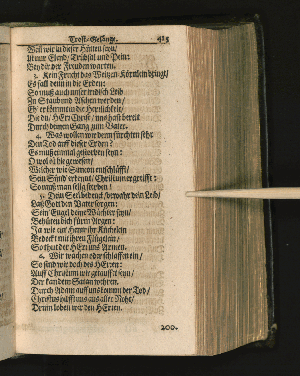 Trost-Gesänge. 515
Weil wir in dieser Hütten seyn/
Ist nur Elend/ Trübsal und Pein:
Bey dir der Freuden warten.
3. Kein Frucht das Weitzen-Körnlein bringt/
Es fall denn in die Erden:
So muß auch unser irdisch Leib
Zu Staub und Aschen werden/
Eh er kömmt zu der Herrlichkeit/
Die du/ HErr Christ/ uns hast bereit
Durch deinen Gang zum Vater.
4. Was wollen wir denn fürchten sehr
Den Tod auff dieser Erden?
Es muß einmal gestorben seyn:
O wol ist hie gewesen/
Welcher wie Simeon entschläfft/
Sein Sünd erkennt/ Christum ergreifft:
So muß man selig sterben!
5. Dein Seel bedenck/ bewahr dein Leib/
Laß Gott den Vater sorgen:
Sein Engel deine Wächter seyn/
Behüten dich fürm Argen:
Ja wie ein Henne ihr Küchelein
Bedeckt mit ihren Flügelein/
So thut der HErr uns Armen.
6. Wir wachen oder schlaffen ein/
So sind wir doch des HErren:
Auff Christum wir getaufft seyn/
Der kan dem Satan wehren.
Durch Adam auff uns kömmt der Tod/
Christus hilfft uns aus aller Noht/
Drum loben wir den HErren.
200.